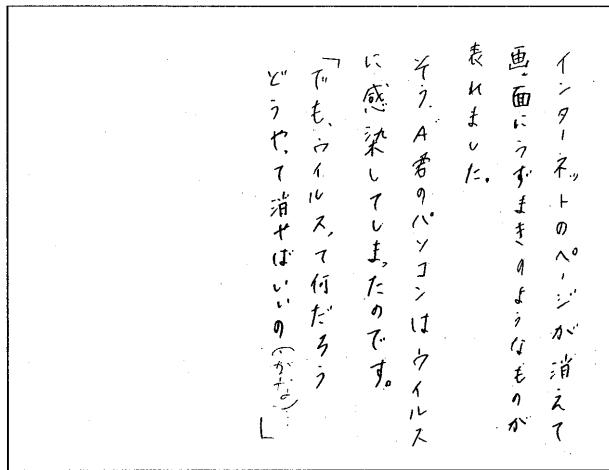 インターネットのページが消えて
画面にうずまきのようなものが
表れました。
そう、A君のパソコンはウイルス
に感染してしまったのです。
「でも、ウイルスって何だろう
どうやって消せばいいの(かな)…」